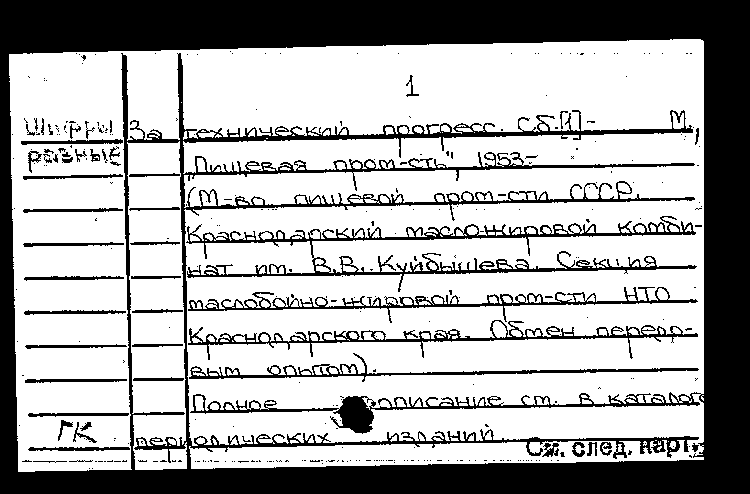 1
Шифры За технический прогресс. Сб.[1]- М.,
разные „Пищевая пром-сть", 1953-
(М-во пищевой пром-сти СССР.
Краснодарский масложировой комби-
нат им. В.В. Куйбышева. Секция
маслобойно-жировой пром-сти НТО
Краснодарского края. Обмен передо-
вым опытом).
Полное описание см. в каталоге
ГК периодических изданий.
См. след. карт.